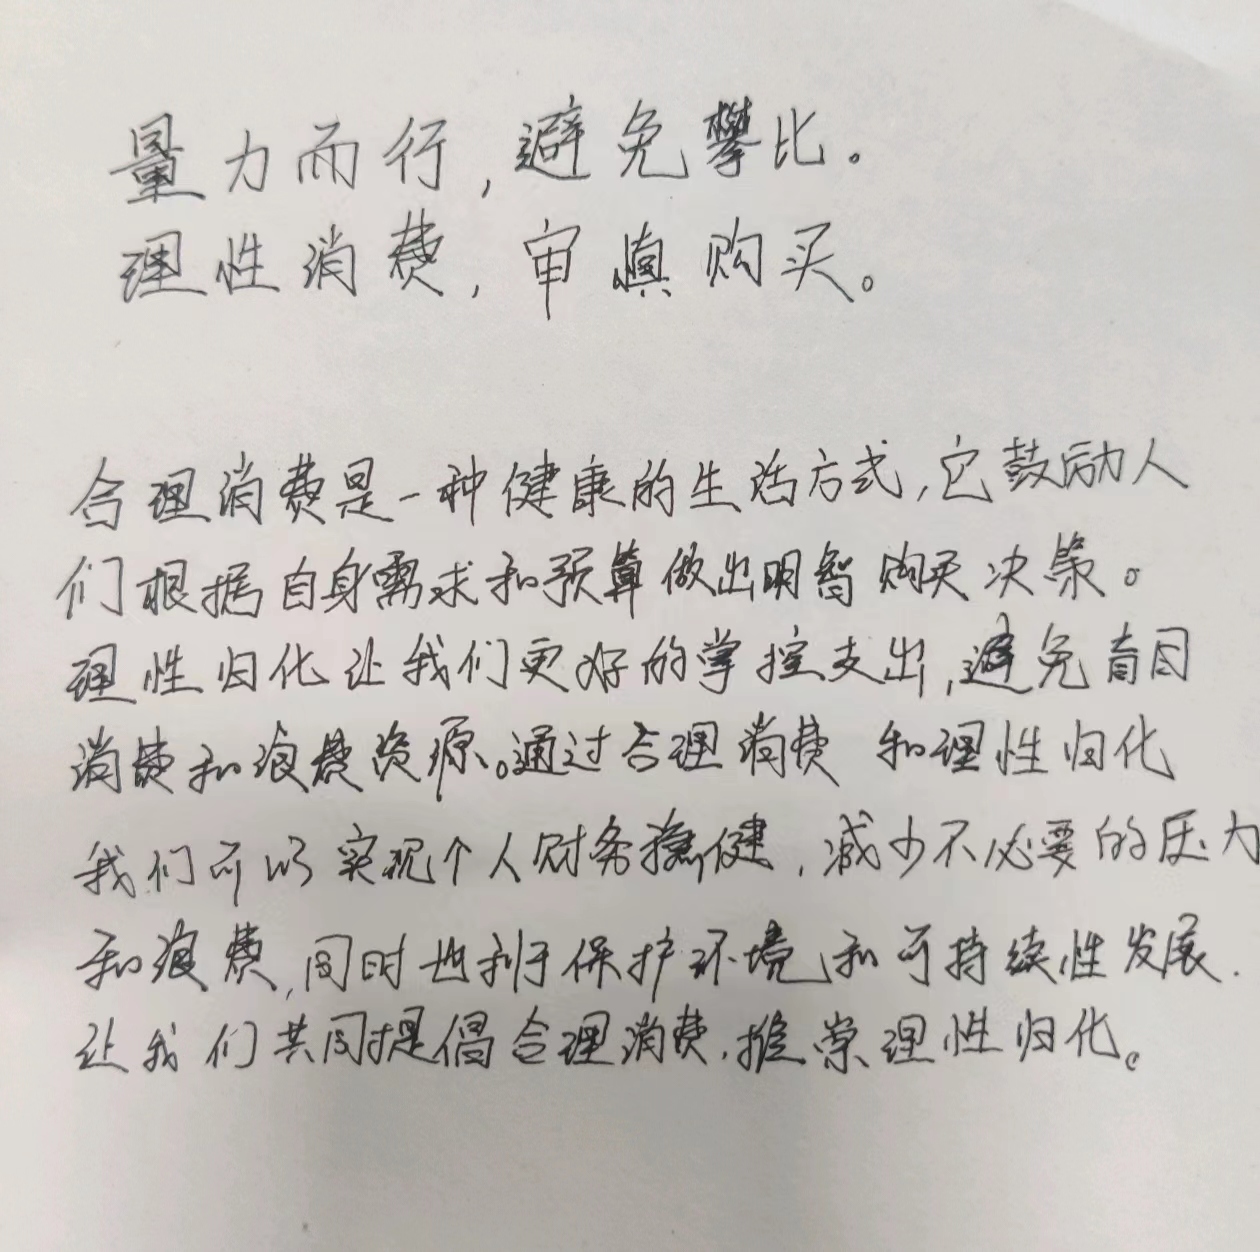 量力而行,避免攀比。
理性消费,审慎购买。
合理消费是一种健康的生活方式,它鼓励人
们根据自身需求和预算做出明智购买决策。
理性归化让我们更好的掌控支出,避免盲目
消费和浪费资源。通过合理消费 和理性归化
我们可以实现个人财务稳健,减少不必要的压力
和浪费,同时也利于保护环境和可持续性发展.
让我们共同提倡合理消费,推崇理性归化。